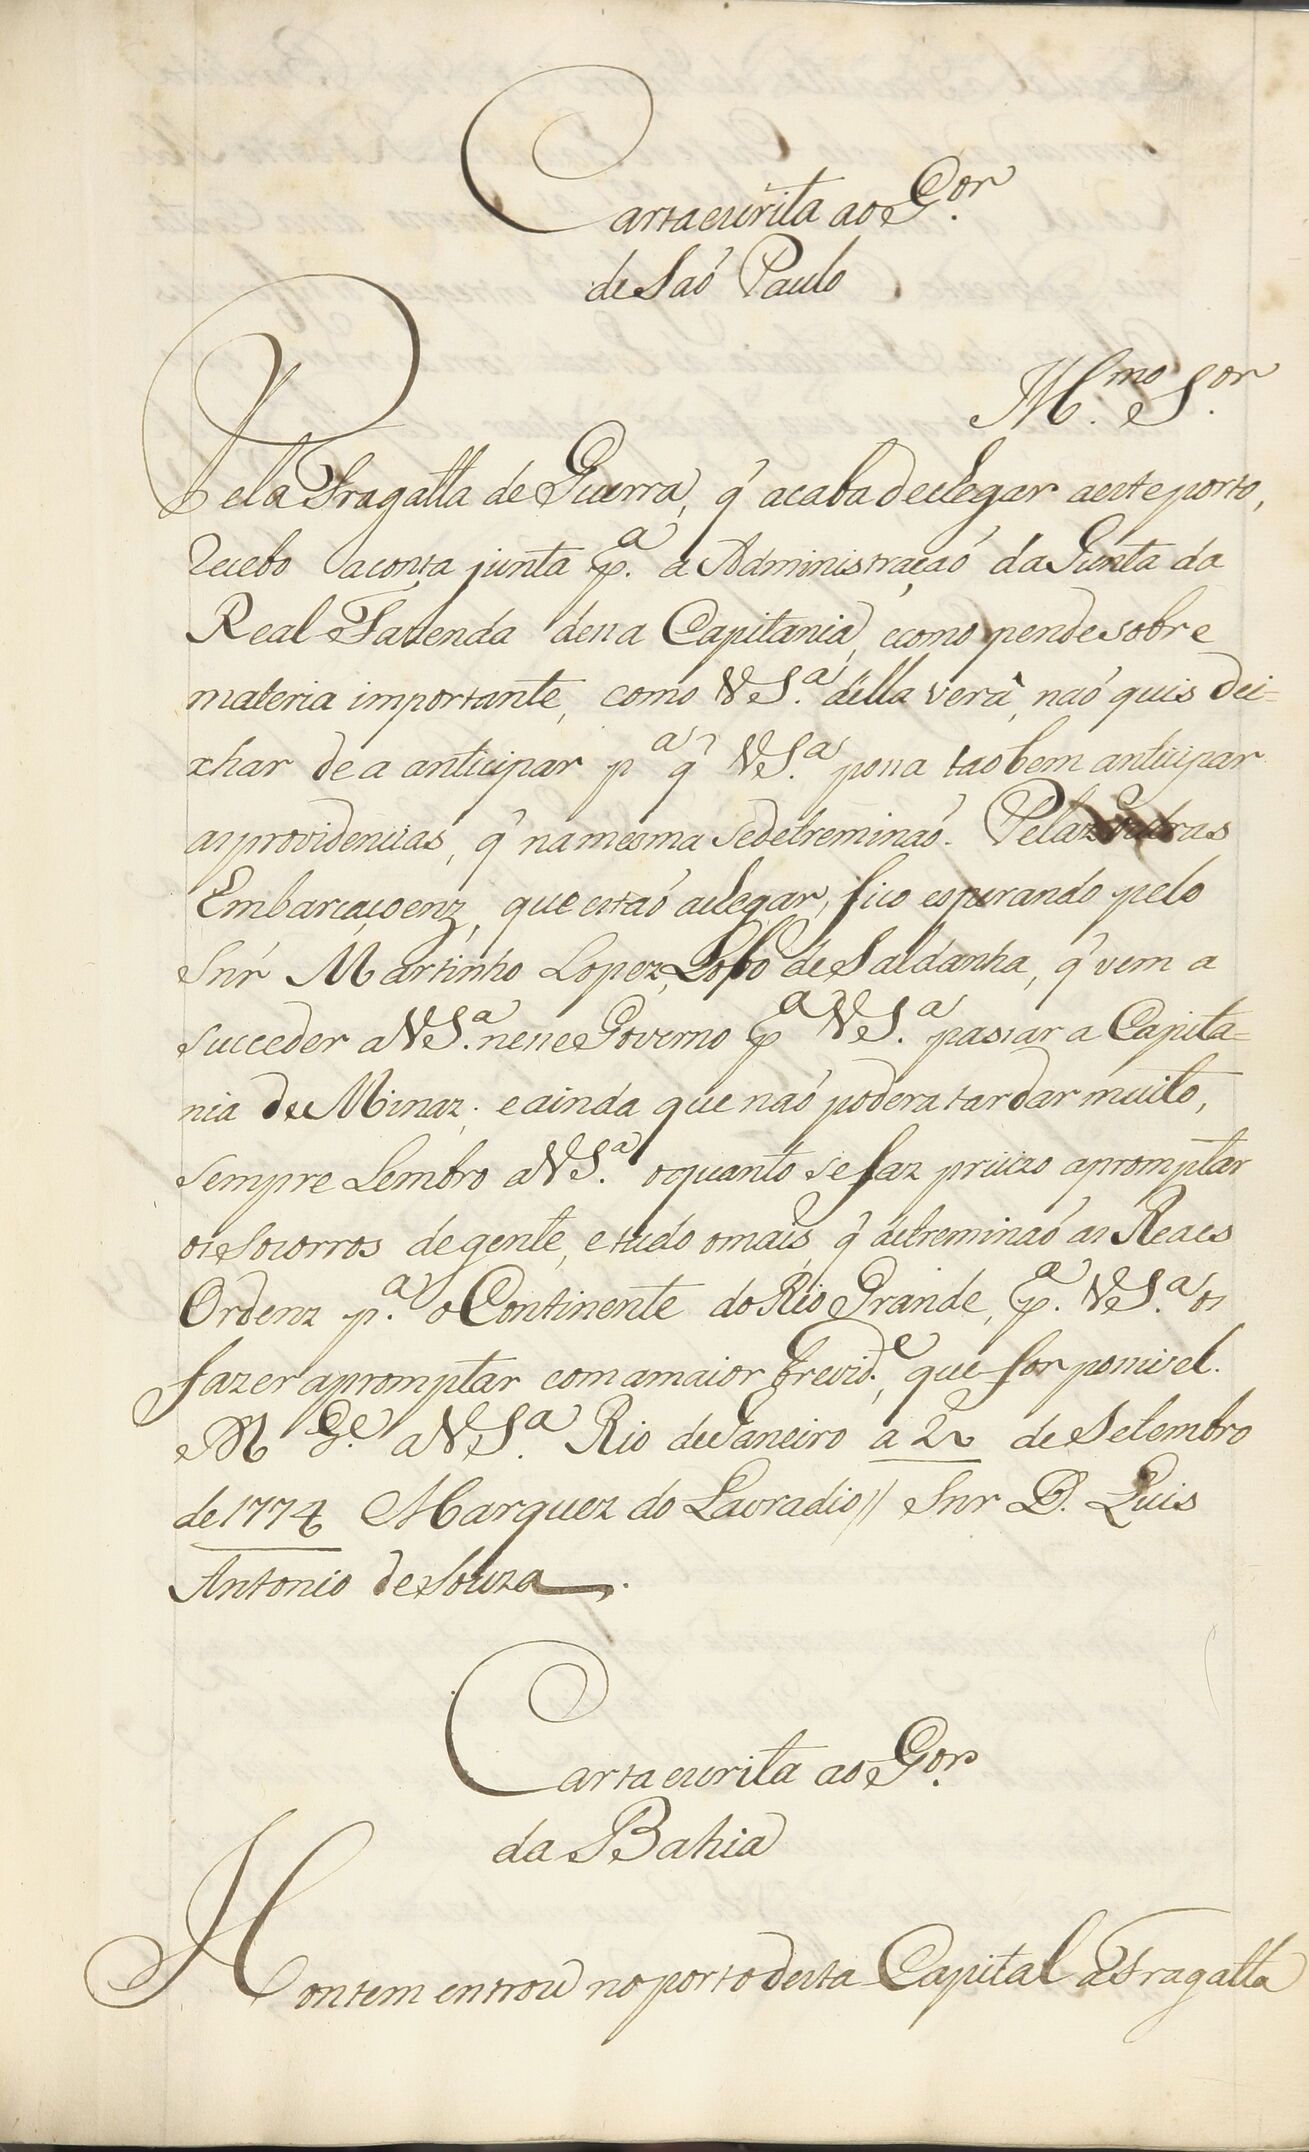 Carta escrita ao G.or
de Saó Paulo
Ill.mo S.or
Pela Fragatta de Guerra, q̃ acaba de chegar a este porto,
recebo a conta junta p.a a Administraçaó da Junta da
Real Fazenda dessa Capitania, e como pende sobre
materia importante, como V S.a della verá, naó quis dei=
xhar de a anticipar p.a q̃ V S.a possa taobem anticipar
as providencias, q̃ na mesma se detreminaó. Pelas outras
Embarcaçoenz, que estaó a chegar, fico esperando pelo
Snr̃ Martinho Lopez Lobo de Saldanha, q̃ vem a
succeder a V S.a nesse Governo p.a V S.a passar a Capita=
nia de Minaz; e ainda que naó poderá tardar muito,
sempre Lembro a V S.a o quanto se faz precizo apromptar
os Socorros de gente, e tudo o mais, q̃ detreminaó as Reaes
Ordenz p.a o Continente do Rio Grande, p.a V S.a os
fazer apromptar com a maior brevid.e, que for possivel.
D.s G.e a V S.a Rio de Janeiro a 2 de Setembro
de 1774 Marquez do Lavradio // Snr D. Luis
Antonio de Souza.
Carta escrita ao G.or
da Bahia
Hontem entrou no porto desta Capital a Fragatta